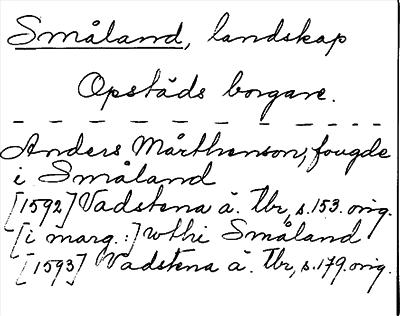 Småland, landskap
Opstäds borgare.
Anders Mårthenson, fougde
i Småland
[1592] Vadstena ä. Tbr, s. 153. orig.
[i marg.:] wthi Småland
[1593] Vadstena ä. Tbr, s. 179. orig.